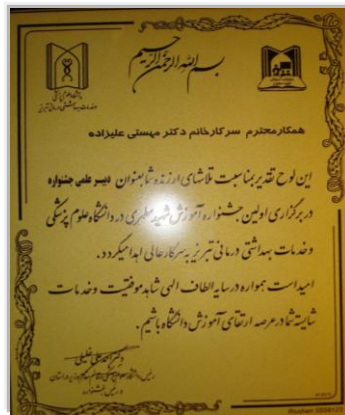 بسم الله الرحمن الرحیم
همکار محترم سرکار خانم دکتر مهستی علیزاده
این لوح تقدیر بمناسبت تلاشهای ارزنده شما بعنوان دبیر علمی جشنواره
در برگزاری اولین جشنواره آموزشی شهید مطهری در دانشگاه علوم پزشکی
و خدمات بهداشتی درمانی تبریز به سرکار عالی اهدا میگردد.
امید است همواره در سایه الطاف الهی شاهد موفقیت و خدمات
شایسته شما در عرصه ارتقای آموزش دانشگاه باشیم.
دکتر
و رییس جشنواره